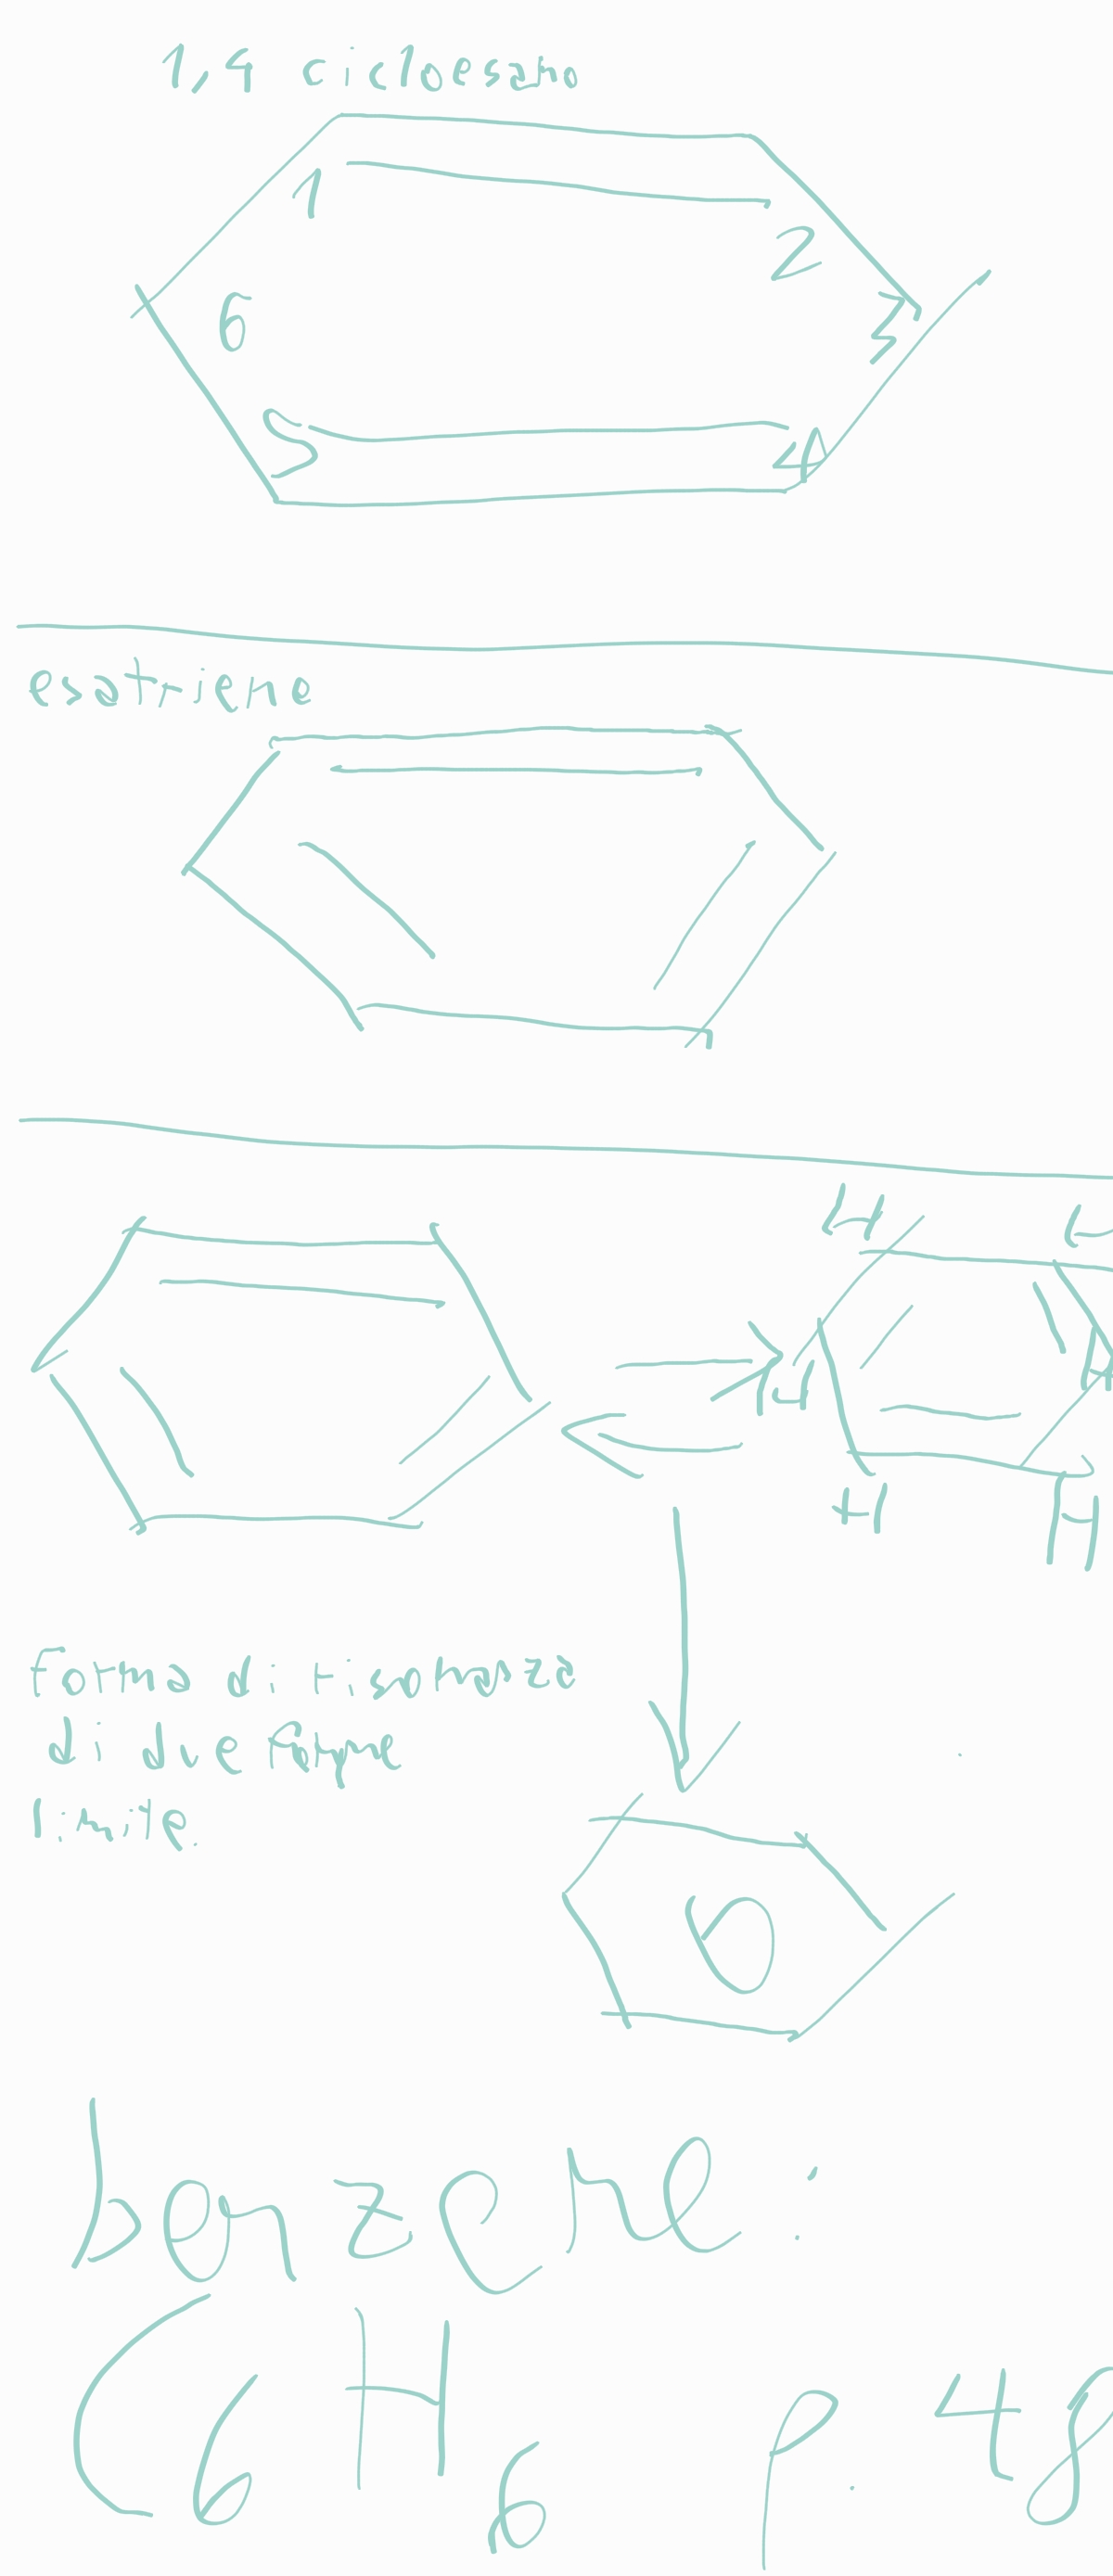 1,4 cicloesano
1
2
6
3
5
4
esatriene
H
H
H
H
H
Forma di risonanza
di due forme
limite.
benzene:
C6H6 p. 48